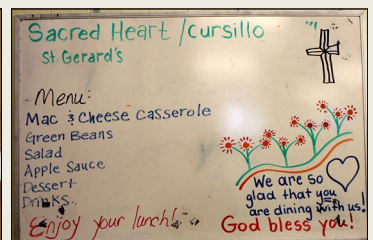 Sacred Heart / Cursillo
St. Gerard's
Menu:
Mac & Cheese Casserole
Green Beans
Salad
Apple Sauce
Dessert
Drinks
Enjoy your lunch!
We are so
glad that you
are dining with us!
God bless you!